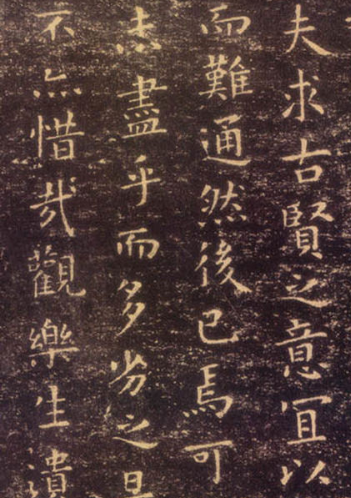 夫求古賢之意宜以
而難通然後已焉可
未盡乎而多劣之是
不亦惜哉觀樂生遺